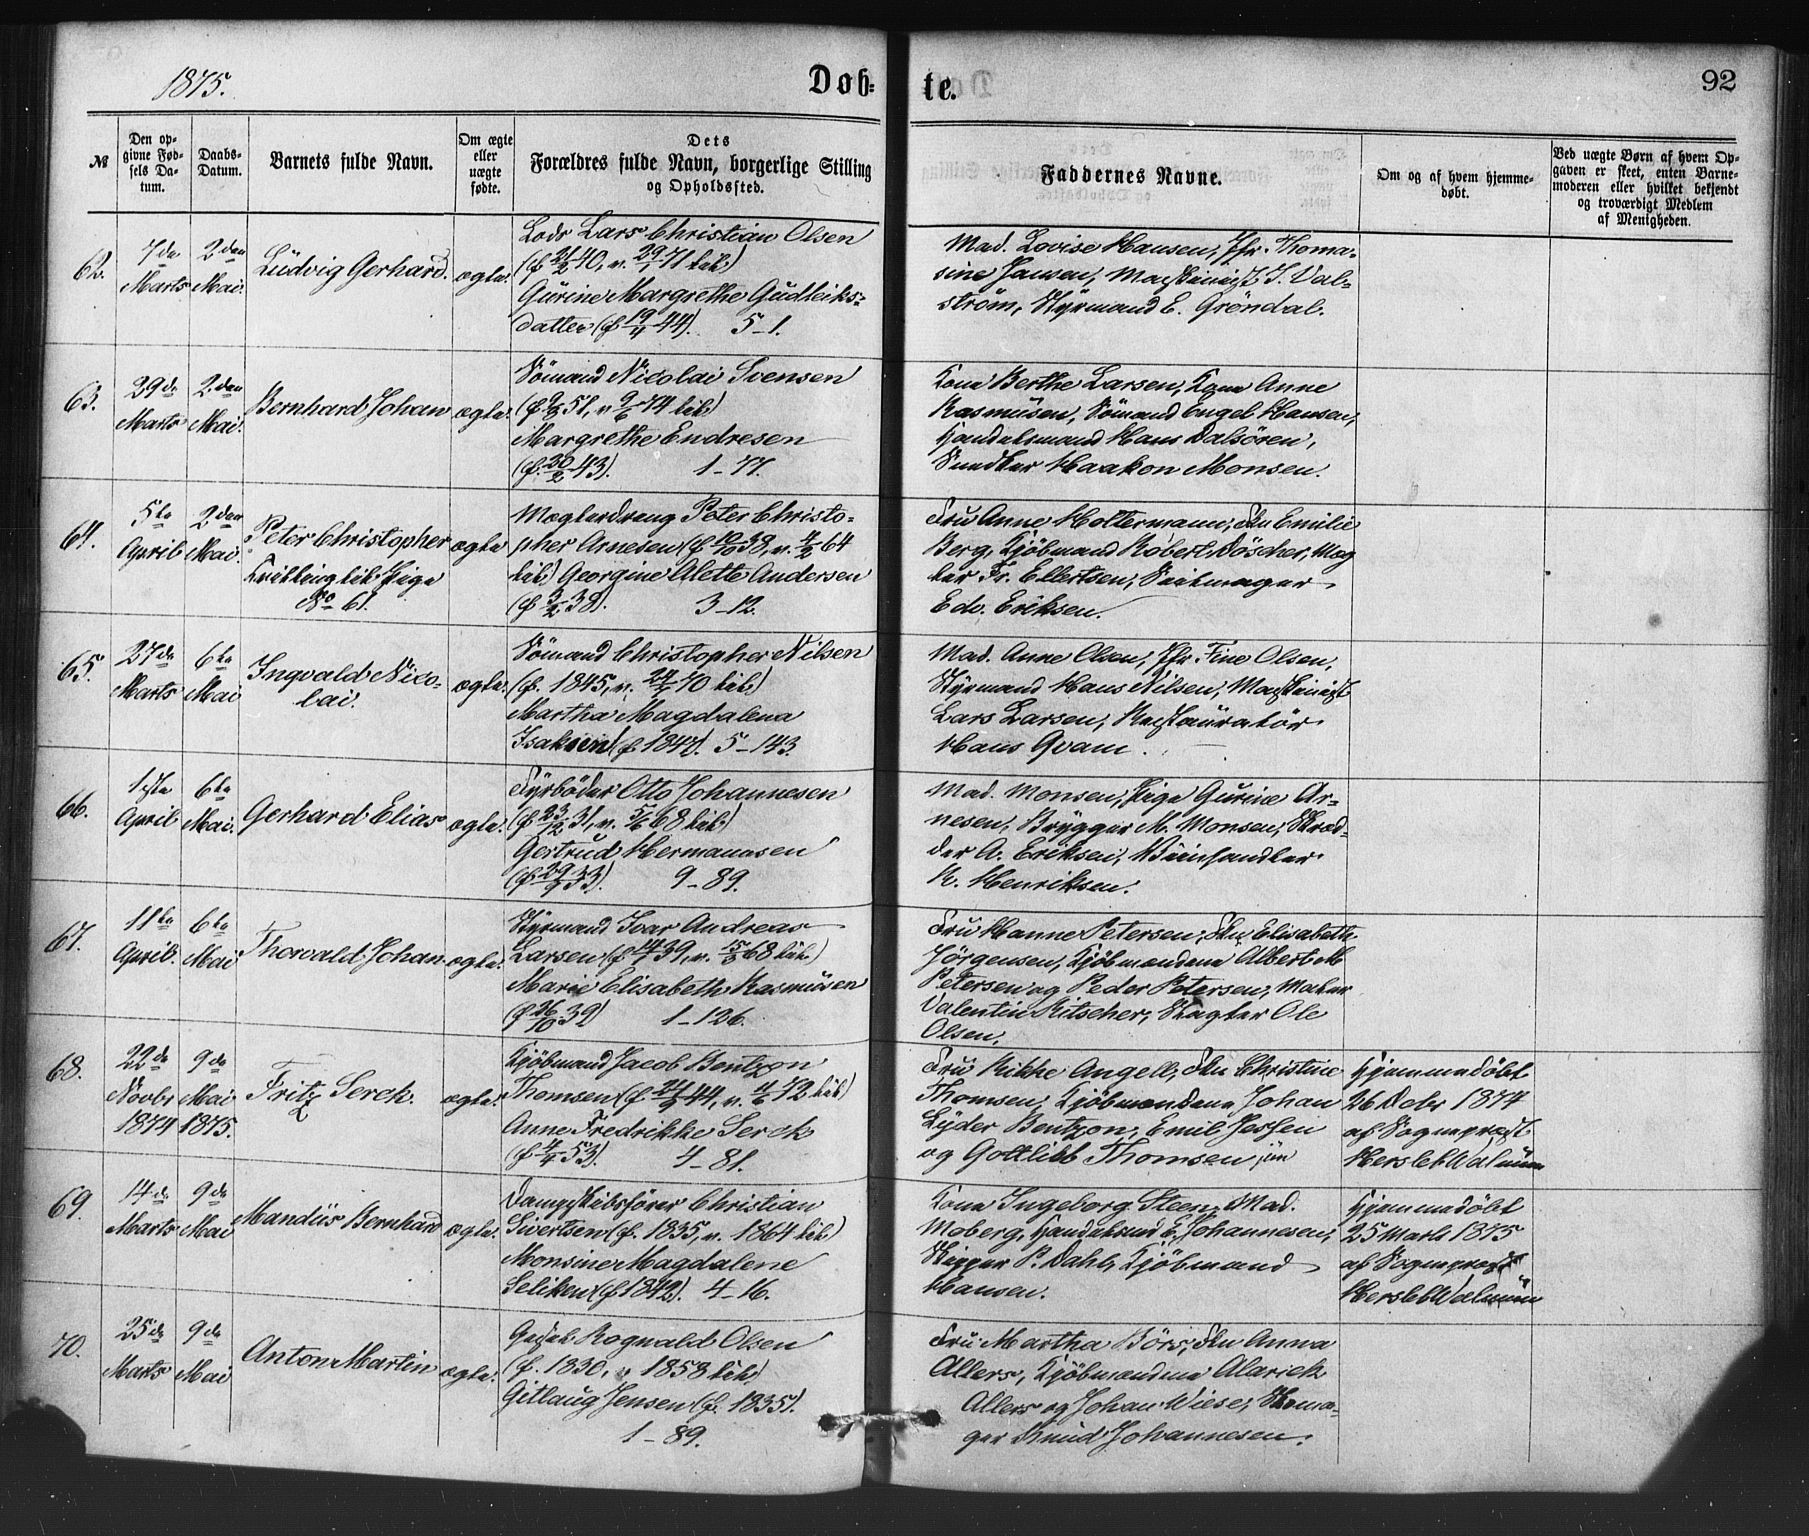 1875.
Døb-
te.
92
№
Den op-
givne Fød-
sels Da-
tum.
Daabs-
Datum.
Barnets fulde Navn.
Om ægte
eller
uægte
fødte.
Dets
Forældres fulde Navn, borgerlige Stilling
og Opholdssted.
Faddernes Navne.
Om og af hvem hjemme-
døbt.
Ved uægte Børn af hvem Op-
gaven er skeet, enten Barne-
moderen eller hvilket bekjendt
og troværdigt Medlem
af Menigheden.
62.
7de
Marts
2den
Mai.
Ludvig Gerhard.
ægte.
Lods Lars Christian Olsen
(f. 21/2 40, v. 29/1 71 her)
Gurine Margrethe Gudleiks-
datter (f. 19/4 44). 5-1.
Mad. Lovise Hansen, Jfr. Thoma-
sine Jansen, Maskinist J. Val-
strøm, Styrmand E. Grøndal.
63.
29de
Marts
2den
Mai.
Bernhard Johan
ægte.
Sømand Nicolai Svensen
Margrethe Endresen
(f. 20/2 43). 1-77.
Kone Berthe Larsen, Kone Anne
Rasmusen, Sømand Engel Hansen,
Handelsmand Hans Dalsøren,
Snedker Haakon Monsen.
64.
5te
April
2den
Mai.
Peter Christopher
Tvilling til Pige
No 61.
ægte
Mæglerdreng Peter Christo-
pher Arnesen (f. 10/10 38, v. 4/2 64
her) Georgine Alette Andersen
(f. 3/2 38). 3-12.
Fru Anne Holtermann, Fru Emilie
Berg, Kjøbmand Robert Døscher, Mæg-
ler Fr. Ellertsen, Seilmager
Edv. Eriksen.
65.
27de
Marts
6te
Mai
Ingvald Nico-
lai.
ægte.
Sømand Christopher Nilsen
(f. 1845, v. 24/7 70 her)
Martha Magdalena
Isaksen (f. 1847). 5-143.
Mad. Anne Olsen, Jfr. Fine Olsen,
Styrmand Hans Nilsen, Maskinist
Lars Larsen, Restauratør
Hans Qvam.
66.
1ste
April
6te
Mai.
Gerhard Elias
ægte.
Fyrbøder Otto Johannesen
(f. 23/12 31, v. 5/6 68 her)
Gertrud Hermannsen
(f. 29/9 33). 9-89.
Mad. Monsen, Pige Gurine Ar-
nesen, Brygger M. Monsen, Skræd-
der A. Eriksen, Viinhandler
R. Henriksen.
67.
11te
April.
6te
Mai
Thorvald Johan
ægte.
Styrmand Ivar Andreas
Larsen
Marie Elisabeth Rasmusen
(f. 26/10 39) 1-126.
Fru Hanne Petersen, Fru Elisabeth
Jørgensen, Kjøbmændene Albert M
Petersen og Peder Petersen, Maler
Valentin Ritscher, Slagter Ole
Olsen.
68.
22de
Novbr
1874
9de
Mai
1875.
Fritz Serck.
ægte.
Kjøbmand Jacob Bentzon
Thomsen (f. 24/9 44, v. 4/6 72 her)
Anne Fredrikke Serck
(f. 4/4 53). 4-81.
Fru Rikke Angell, Fru Christine
Thomsen, Kjøbmændene Johan
Lyder Bentzon, Emil Jessen
og Gottlieb Thomsen jun
Hjemmedøbt
26 Debr 1874
af Sogneprest
Hersleb Walnum
69.
14de
Marts
9de
Mai
Mandiis Bernhard
ægte.
Dampskibsfører Christian
Sivertsen (f. 1835, v. 1864 her)
Monsine Magdalene
Seliken (f. 1842). 4-16.
Kone Ingeborg Steen, Mad.
Moberg, Handelsmd E. Johannesen,
Skipper P. Dahl, Kjøbmand
Hansen.
Hjemmedøbt
25 Marts 1875
af Sogneprest
Hersleb Walnum
70.
25de
Marts
9de
Mai
Anton Martin
ægte.
Rognald Olsen
(f. 1830, v 1858 her)
Gitlaug Jensen (f. 1835).
1-89.
Fru Martha Börs, Fru Anna
Allers, Kjøbmændene Alarick
Allers og Johan Wiese, Skoma-
ger Knud Johannesen.